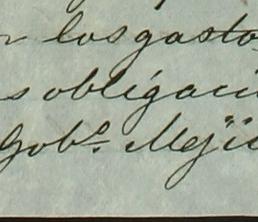 r los gasto
s obligaci
Gobo. Mejic